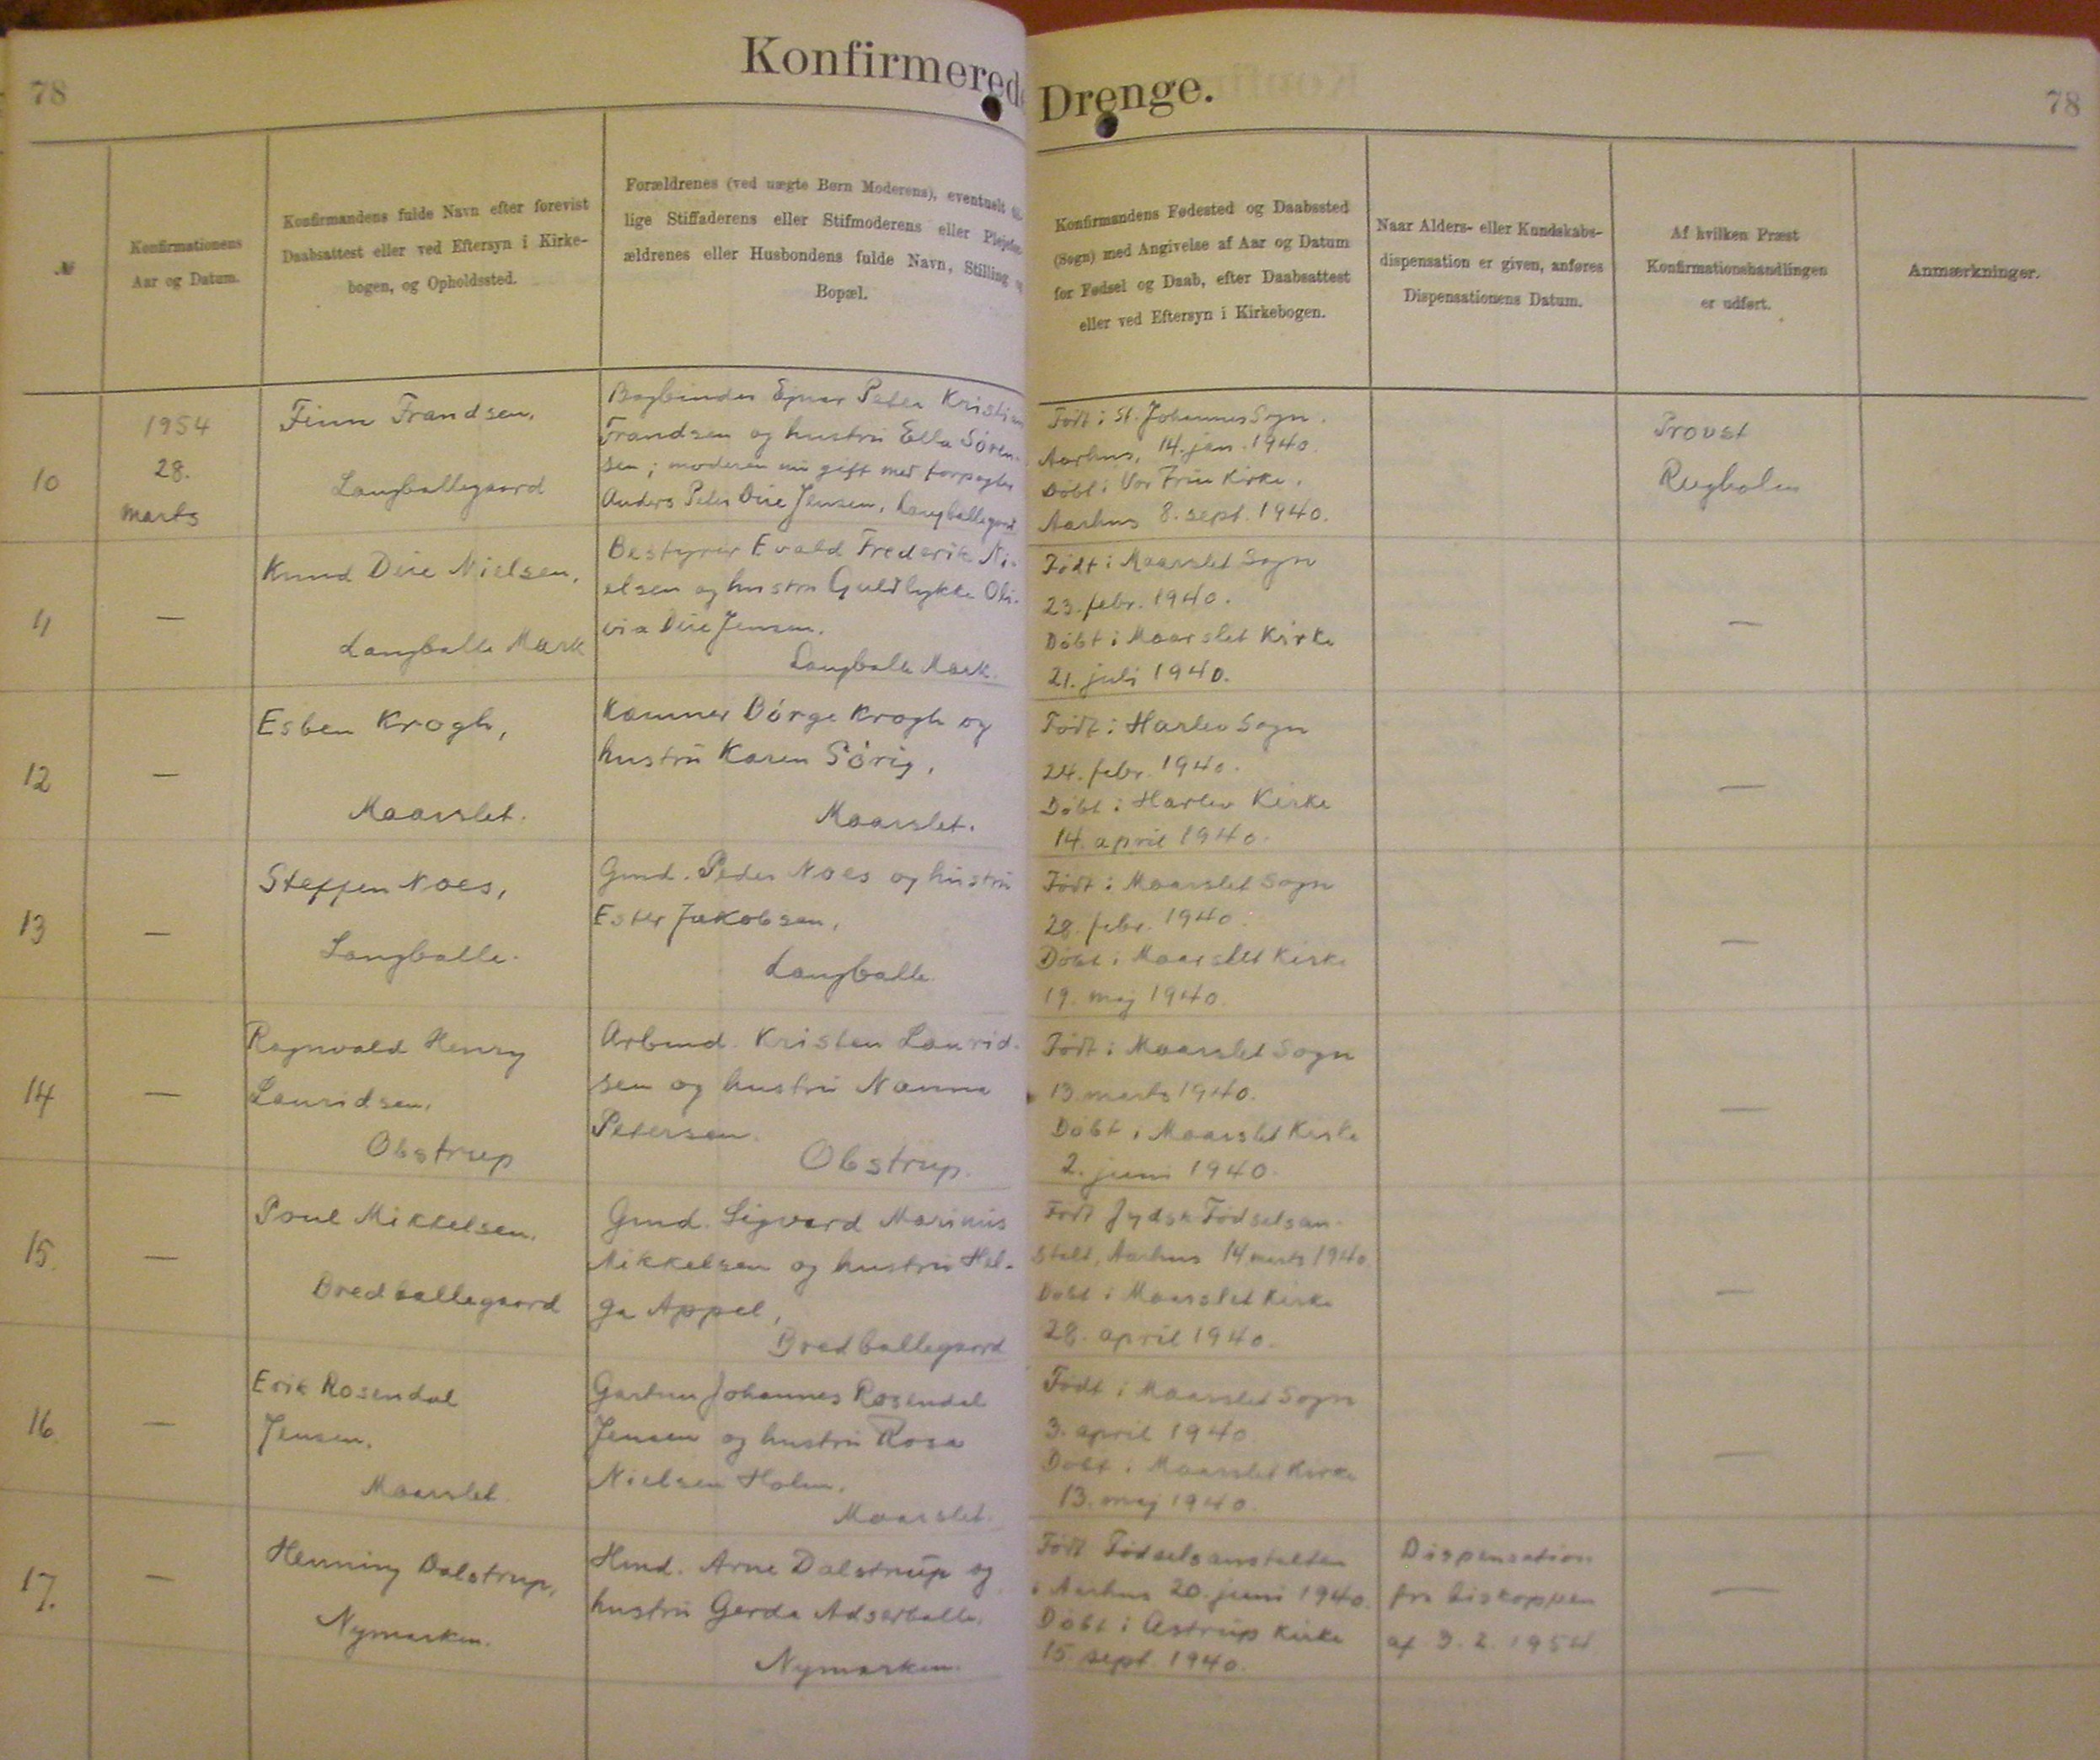 78
Konfirmerede
Drenge.
78
№
Konfirmationens
Aar og Datum.
Konfirmandens fulde Navn efter forevist
Daabsattest eller ved Eftersyn i Kirke-
bogen, og Opholdssted.
Forældrenes (ved uægte Børn Moderens), eventuelt
lige Stiffaderens eller Stifmoderens eller
ældrenes eller Husbondens fulde Navn, Stilling
Bopæl.
Konfirmandens Fødested og Daabssted
(Sogn) med Angivelse af Aar og Datum
for Fødsel og Daab, efter Daabsattest
eller ved Eftersyn i Kirkebogen.
Naar Alders- eller Kundskabs-
dispensation er given, anføres
Dispensationens Datum.
Af hvilken Præst
Konfirmationshandlingen
er udført.
Anmærkninger.
10
1954
28.
Marts
Finn Frandsen,
Langballegaard
Bogbinder Ejnar Peter Kristian
Frandsen og hustru Ella Søren-
sen; moderen nu gift med forpagter
Anders Peter Due Jensen, Langballegaard
Født i St. Johannes Sogn.
Aarhus, 14. jan. 1940.
Døbt i Vor Frue Kirke,
Aarhus 8. sept. 1940.
Provst
Rugholm
11
—
Knud Due Nielsen,
Langballe Mark
Bestyrer Evald Frederik Ni-
elsen og hustru Guldlykke Oli-
via Due Jensen.
Langballe Mark.
Født i Maarslet Sogn
23. febr. 1940.
Døbt i Maarslet Kirke
21. juli 1940.
—
12
—
Esben Krogh,
Maarslet.
Kammer Børge Krogh og
hustru Karen Sørig,
Maarslet.
Født i Harlev Sogn
24. febr. 1940.
Døbt i Harlev Kirke
14. april 1940.
—
13
—
Steffen Noes,
Langballe.
Gmd. Peder Noes og hustru
Ester Jakobsen,
Langballe.
Født i Maarslet Sogn
28. febr. 1940.
Døbt i Maarslet Kirke
19. maj 1940.
—
14
—
Ragnvald Henry
Lauridsen.
Obstrup
Arbmd. Kristen Laurid-
sen og hustru Nanna
Petersen.
Obstrup.
Født i Maarslet Sogn
13. marts 1940.
Døbt i Maarslet Kirke
2. juni 1940.
—
15.
—
Poul Mikkelsen.
Bredballegaard
Gmd. Sigvard Marinus
Mikkelsen og hustru Hel-
ga Appel,
Bredballegaard
Født Jydsk Fødselsan-
stalt, Aarhus 14 marts 1940.
Døbt i Maarslet Kirke
28. april 1940.
—
16
—
Erik Rosendal
Jensen.
Maarslet.
Gartner Johannes Rosendal
Jensen og hustru Rosa
Nielsen Holm.
Maarslet.
Født i Maarslet Sogn
3. april 1940.
Døbt i Maarslet Kirke
13. maj 1940.
—
17.
—
Henning Dalstrup,
Nymarken.
Hmd. Arne Dalstrup og
hustru Gerda Adserballe.
Nymarken.
Født Fødselsanstalten
i Aarhus 20. juni 1940.
Døbt i Astrup Kirke
15. sept. 1940.
Dispensation
fra biskoppen
af 3. 2. 1954
—